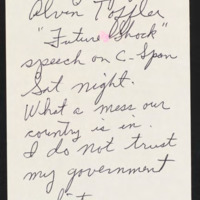 Alvin Toffler
"Future Shock"
speech on C-Span
Sat night.
What a mess our
country is in.
I do not trust
my government